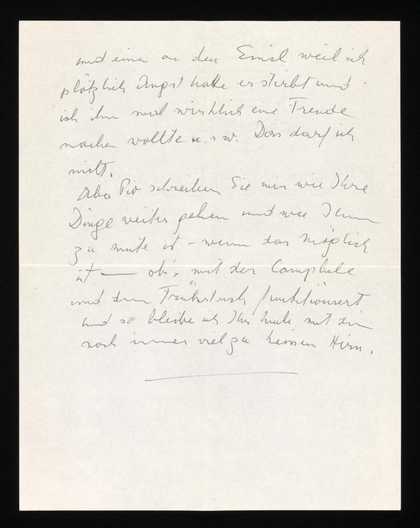 und einen an den Emil weil ich
plötzlich Angst hatte er stirbt und
ich ihm noch wirklich eine Freude
machen wollte u.s.w. Das darf ich
nicht.
Aber Sie schreiben Sie mir wie Ihre
Dinge weiter gehen und wie Ihnen
zu mute ist – wenn das möglich
ist — ob's mit der
und dem Frühstück funktioniert
und so bleibe ich Ihr mit dem
noch immer viel zu heissen Hirn.